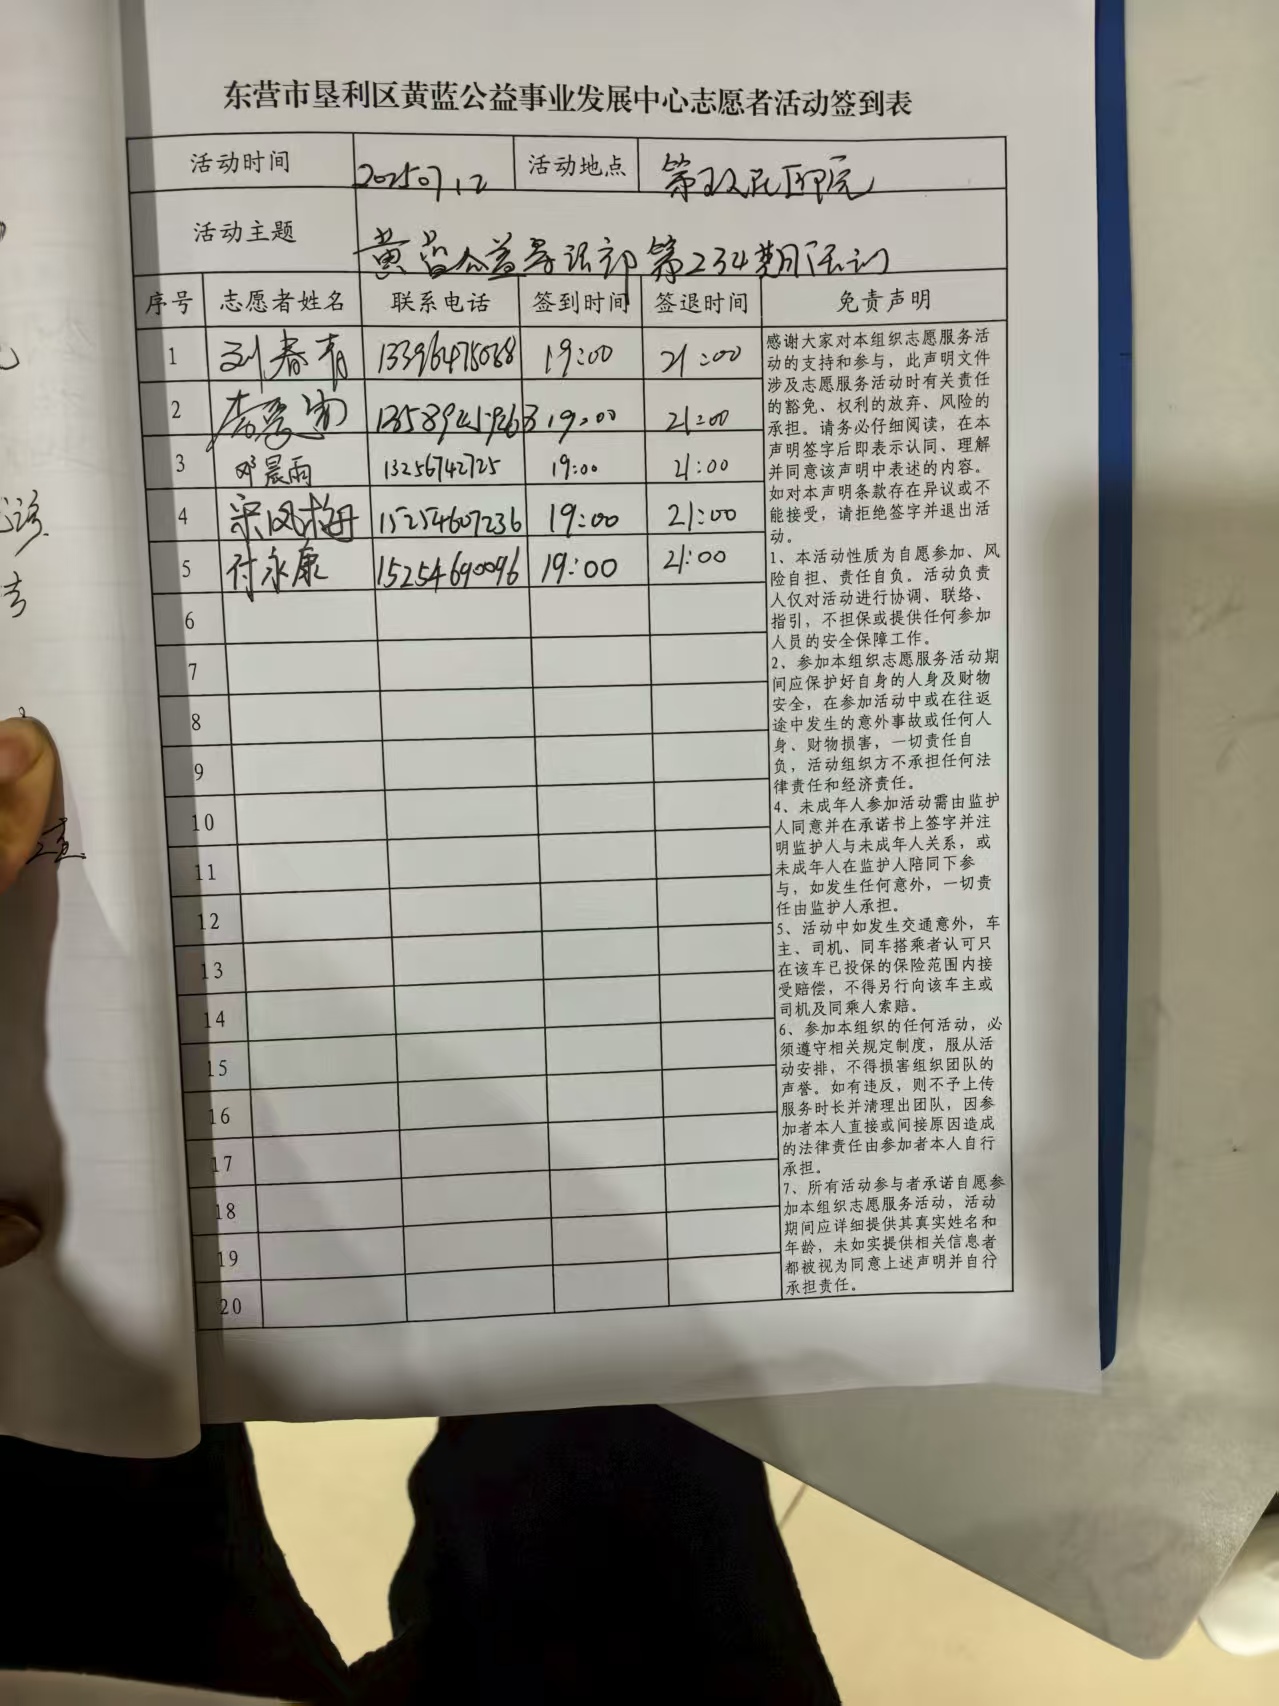 东营市垦利区黄蓝公益事业发展中心志愿者活动签到表
活动时间 20250712 活动地点 第二人民医院
活动主题 黄蓝公益导诊部第234期活动
序号 志愿者姓名 联系电话 签到时间 签退时间 免责声明
1 刘春青 13396475068 19:00 21:00
2 19:00 21:00
3 邓晨雨 13256742725 19:00 21:00
4 宋凤梅 15254607236 19:00 21:00
5 付永康 15254690096 19:00 21:00
6
7
8
9
10
11
12
13
14
15
16
17
18
19
20
感谢大家对本组织志愿服务活
动的支持和参与，此声明文件
涉及志愿服务活动时有关责任
的豁免、权利的放弃、风险的
承担。请务必仔细阅读，在本
声明签字后即表示认同、理解
并同意该声明中表述的内容。
如对本声明条款存在异议或不
能接受，请拒绝签字并退出活
动。
1、本活动性质为自愿参加、风
险自担、责任自负。活动负责
人仅对活动进行协调、联络、
指引，不担保或提供任何参加
人员的安全保障工作。
2、参加本组织志愿服务活动期
间应保护好自身的人身及财物
安全，在参加活动中或在往返
途中发生的意外事故或任何人
身、财物损害，一切责任自
负，活动组织方不承担任何法
律责任和经济责任。
4、未成年人参加活动需由监护
人同意并在承诺书上签字并注
明监护人与未成年人关系，或
未成年人在监护人陪同下参
与，如发生任何意外，一切责
任由监护人承担。
5、活动中如发生交通意外，车
主、司机、同车搭乘者认可只
在该车已投保的保险范围内接
受赔偿，不得另行向该车主或
司机及同乘人索赔。
6、参加本组织的任何活动，必
须遵守相关规定制度，服从活
动安排，不得损害组织团队的
声誉。如有违反，则不予上传
服务时长并清理出团队，因参
加者本人直接或间接原因造成
的法律责任由参加者本人自行
承担。
7、所有活动参与者承诺自愿参
加本组织志愿服务活动，活动
期间应详细提供其真实姓名和
年龄，未如实提供相关信息者
都被视为同意上述声明并自行
承担责任。